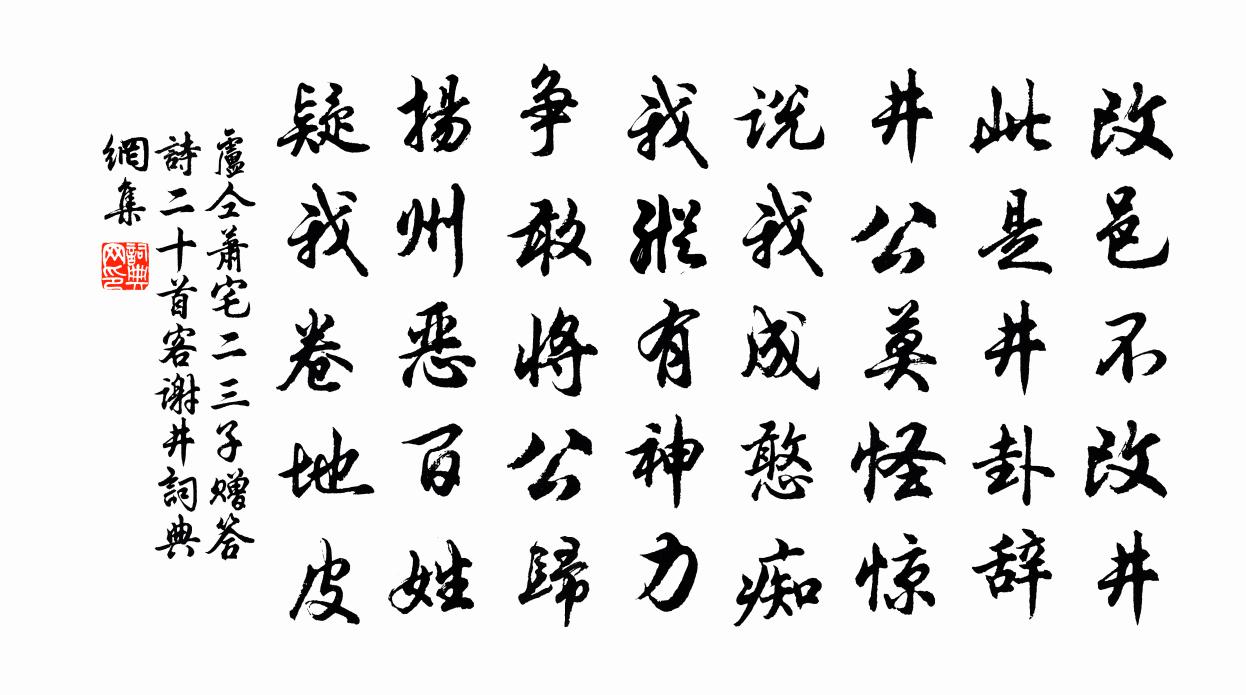 改邑不改井
此是井卦辞
井公莫怪惊
说我成憨痴
我纵有神力
争敢将公歸
揚州恶百姓
疑我卷地皮
盧仝萧宅二三子赠答
詩二十首客谢井詞典
網集